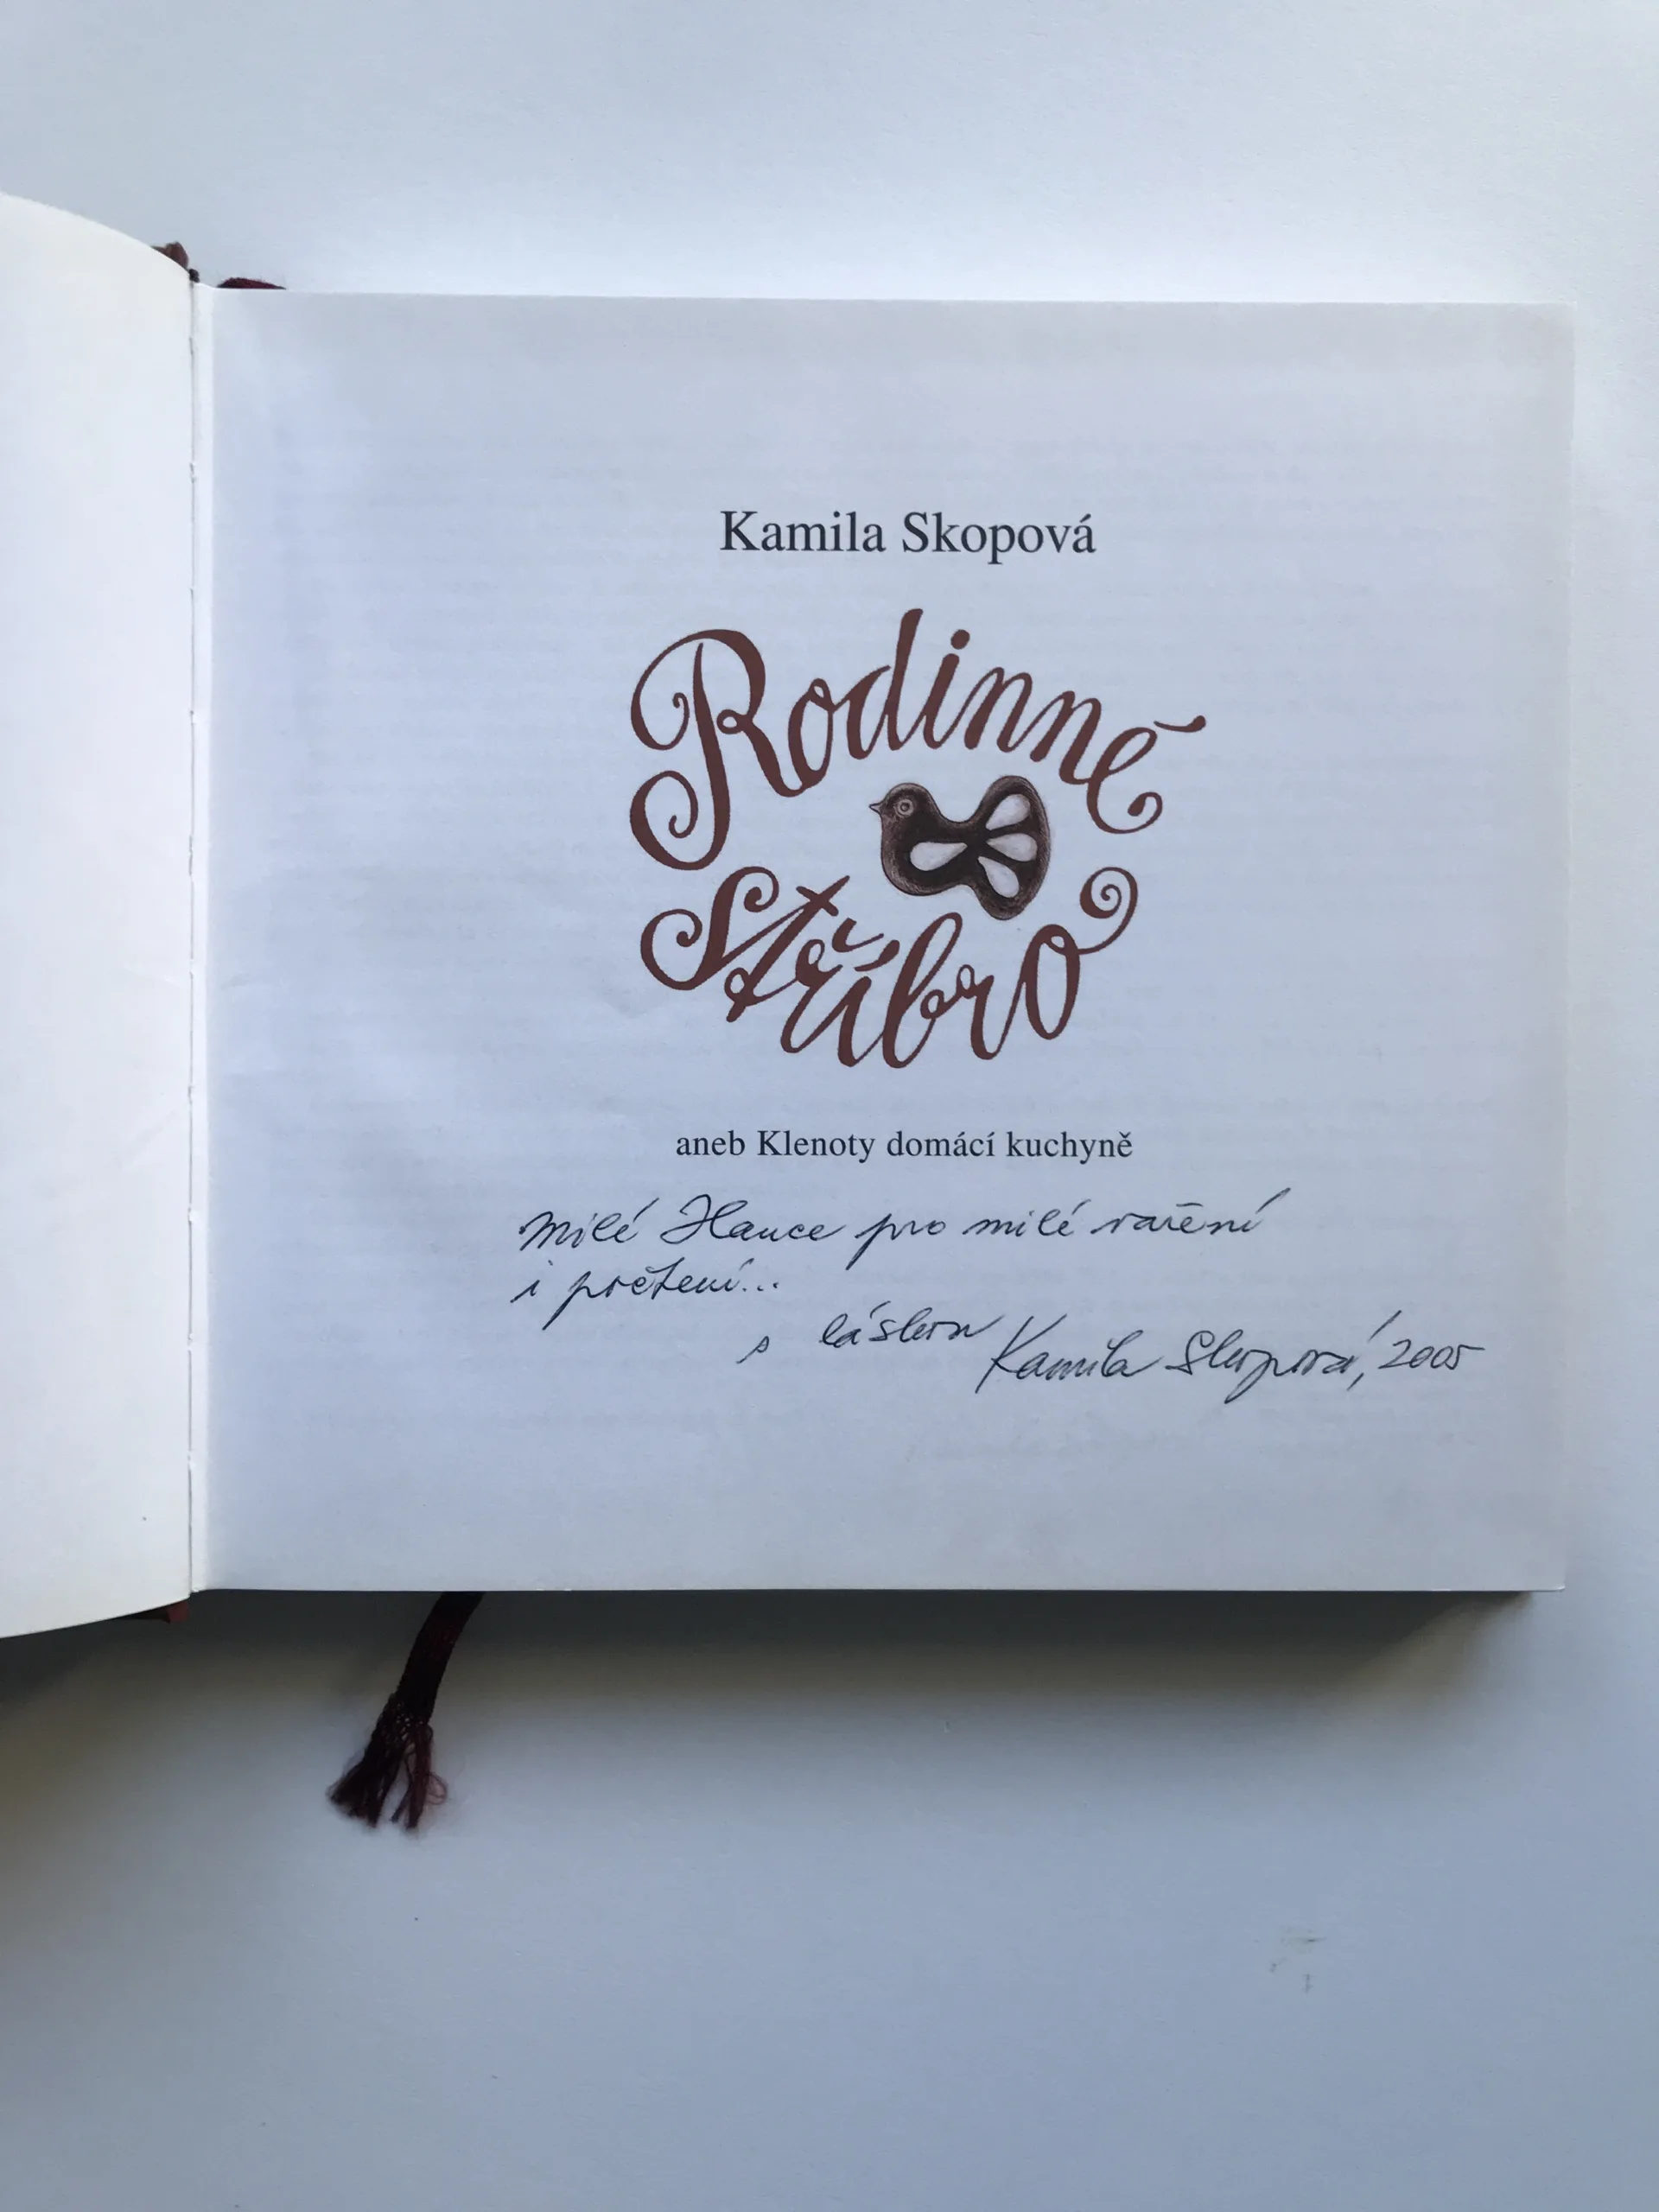 Kamila Skopová
Rodinné
Stříbro
aneb Klenoty domácí kuchyně
Milé Hance pro milé vaření
i počtení...
s láskou Kamila Skopová, 2005